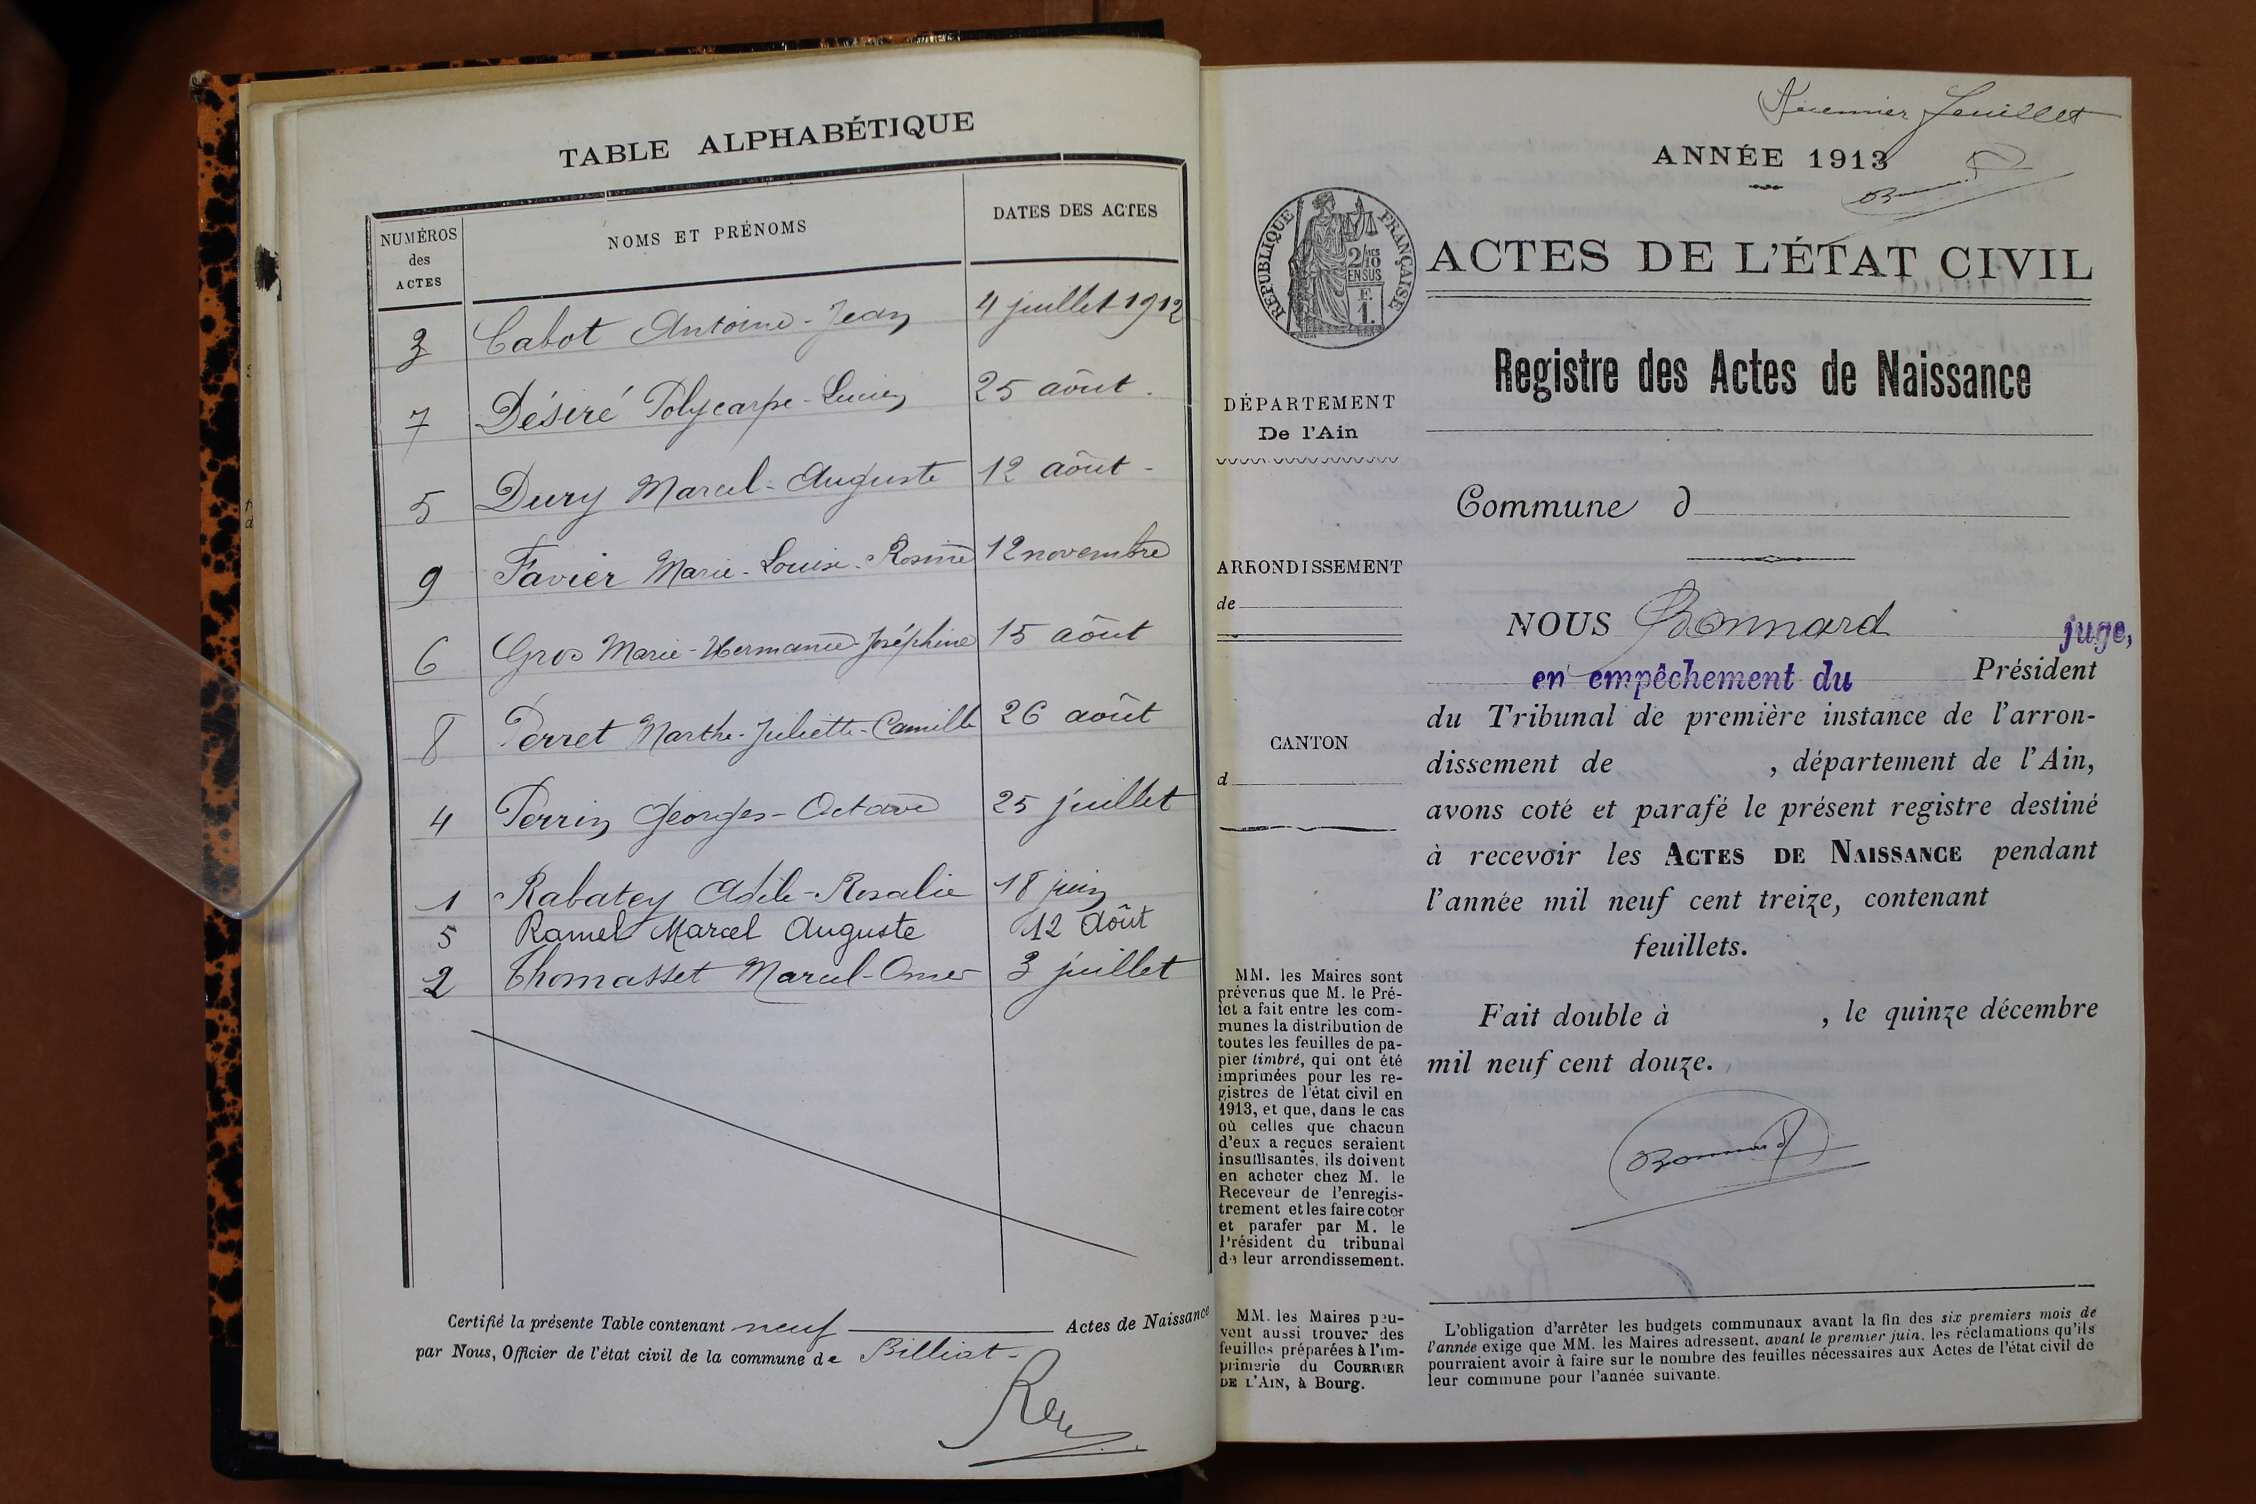 TABLE ALPHABÉTIQUE
NUMÉROS des ACTES NOMS ET PRÉNOMS DATES DES ACTES
3 Cabot Antoine-Jean 4 juillet 1912
7 Désiré Polycarpe-Lucien 25 aôut.
5 Dury Marcel-Auguste 12 aôut-
9 Favier Marie-Louise-Rosine 12 novembre
6 Gros Marie-Hermance-Joséphine 15 aôut
8 Perret Marthe-Juliette-Camille 26 aôut
4 Perrin Georges-Octave 25 juillet
1 Rabatey Adèle-Rosalie 18 juin
5 Ramel Marcel Auguste 12 Aôût
2 Thomasset Marcel-Omer 3 juillet
Certifié la présente Table contenant neuf Actes de Naissance
par Nous, Officier de l'état civil de la commune de Billiat-
Premier feuillet
ANNÉE 1913
RÉPUBLIQUE FRANÇAISE
2/10 MES
EN SUS
F.
1.
ACTES DE L'ÉTAT CIVIL
Registre des Actes de Naissance
DÉPARTEMENT
De l'Ain
Commune d
ARRONDISSEMENT
de
CANTON
d
NOUS Bonnard juge,
en empêchement du Président
du Tribunal de première instance de l'arron-
dissement de , département de l'Ain,
avons coté et parafé le présent registre destiné
à recevoir les ACTES DE NAISSANCE pendant
l'année mil neuf cent treize, contenant
feuillets.
Fait double à , le quinze décembre
mil neuf cent douze.
Bonnard
MM. les Maires sont
prévenus que M. le Pré-
fet a fait entre les com-
munes la distribution de
toutes les feuilles de pa-
pier timbré, qui ont été
imprimées pour les re-
gistres de l'état civil en
1913, et que, dans le cas
où celles que chacun
d'eux a reçues seraient
insuffisantes, ils doivent
en acheter chez M. le
Receveur de l'enregis-
trement et les faire coter
et parafer par M. le
Président du tribunal
de leur arrondissement.
MM. les Maires peu-
vent aussi trouver des
feuilles préparées à l'im-
primerie du COURRIER
DE L'AIN, à Bourg.
L'obligation d'arrêter les budgets communaux avant la fin des six premiers mois de
l'année exige que MM. les Maires adressent, avant le premier juin, les réclamations qu'ils
pourraient avoir à faire sur le nombre des feuilles nécessaires aux Actes de l'état civil de
leur commune pour l'année suivante.